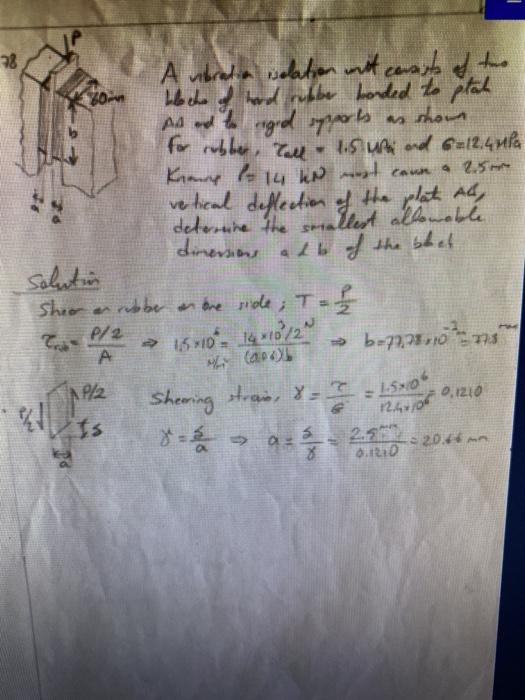 78
P
60mm
b
a
a
A vibration isolation unit consists of two
blocks of hard rubber bonded to plat
AB and to rigid supports as shown
For rubber, τall = 1.5 MPa and G=12.4MPa
Knowing P= 14 kN must cause a 2.5mm
vertical deflection of the plat AB,
determine the smallest allowable
dimensions a & b of the block
Solution
Shear on rubber on one side; T = P/2
= P/2 / A ⇒ 1.5×10⁶ = 14×10³/2 / (0.06)b ⇒ b=77.78×10⁻³ = 77.8 mm
N/m²
N
P/2
P/2
δ
a
Shearing strain, γ = τ/G = 1.5×10⁶ / 12.4×10⁶ = 0.1210
γ = δ/a ⇒ a = δ/γ = 2.5mm / 0.1210 = 20.66 mm